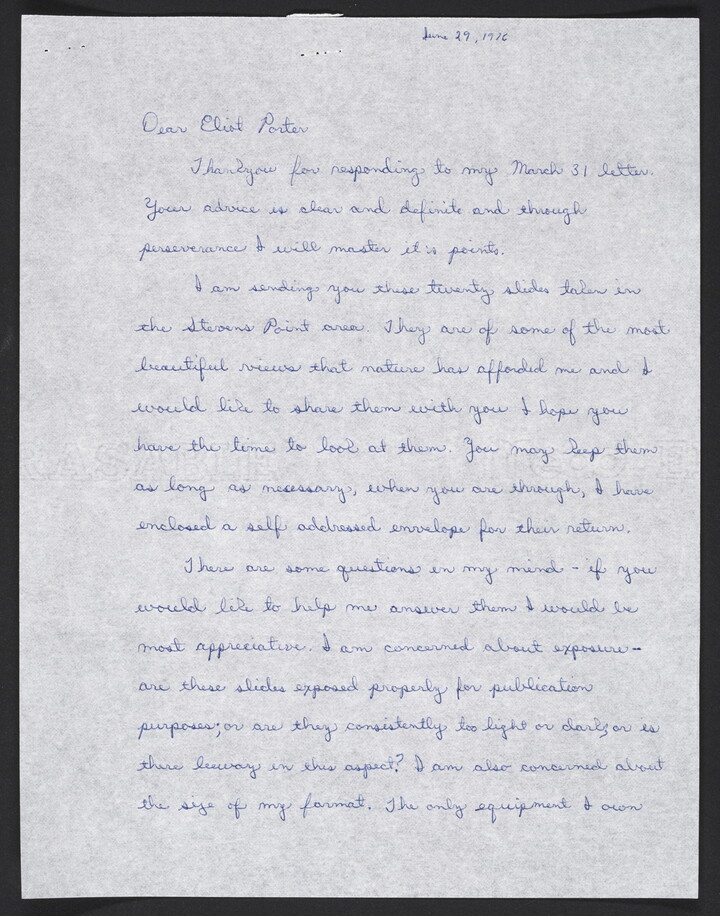 June 29, 1976
Dear Eliot Porter
Thankyou for responding to my March 31 letter.
Your advice is clear and definite and through
perseverance I will master it's points.
I am sending you these twenty slides taken in
the Stevens Point area. They are of some of the most
beautiful views that nature has afforded me and I
would like to share them with you I hope you
have the time to look at them. You may keep them
as long as necessary, when you are through, I have
enclosed a self addressed envelope for their return.
There are some questions in my mind - if you
would like to help me answer them I would be
most appreciative. I am concerned about exposure -
are these slides exposed properly for publication
purposes; or are they consistently too light or dark; or is
there leeway in this aspect? I am also concerned about
the size of my format. The only equipment I own